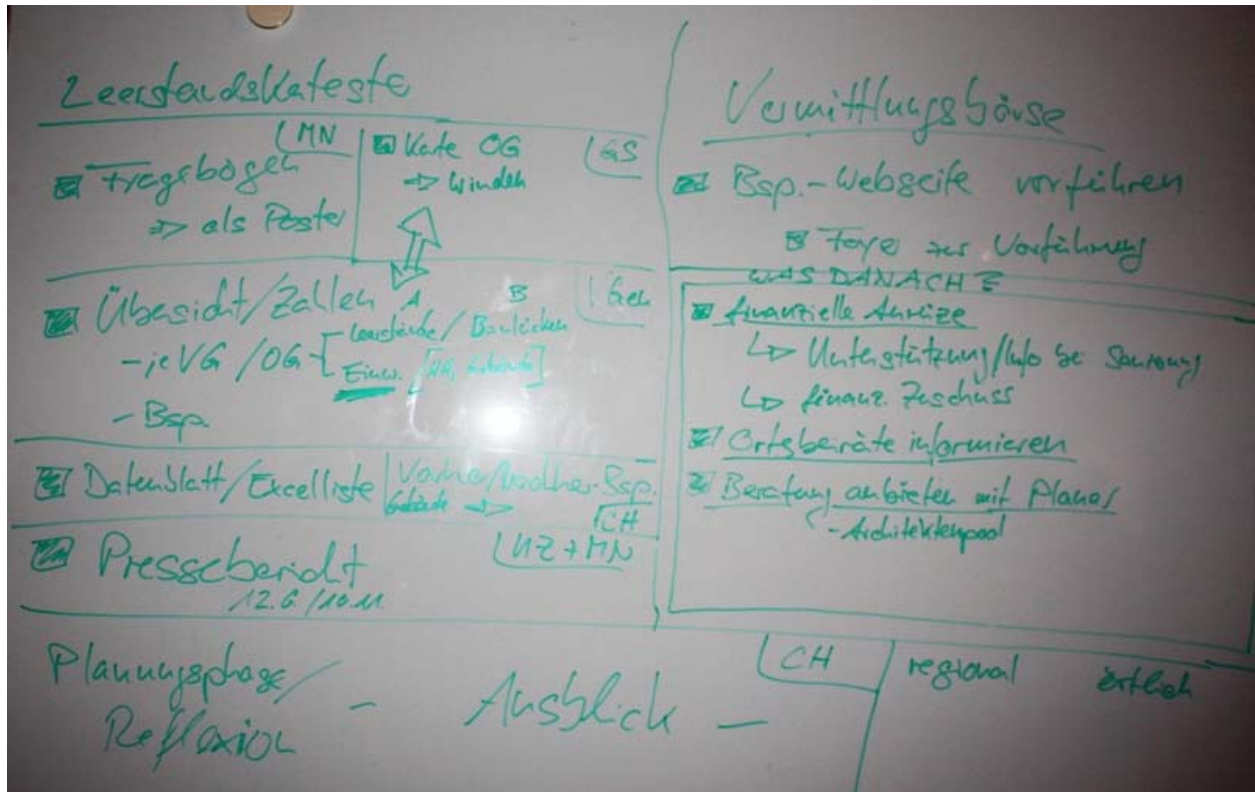 Leerstandskataster
Fragebögen
MN
⇒ als Poster
Karte OG
GS
⇒ Winden
Übersicht/Zahlen
A
B
Leerstände/Baulücken
- je VG/OG
Einw.
- Bsp.
Datenblatt/Excelliste
Vorher/Nachher-Bsp.
Gebäude ⇒
CH
Pressebericht
UZ+MN
12.6./10.11.
Vermittlungsbörse
Bsp.-Webseite vorführen
zur Vorführung
WAS DANACH?
finanzielle Anreize
↳ Unterstützung/Info bei Sanierung
↳ finanz. Zuschuss
Ortsbeiräte informieren
Beratung anbieten mit Planer/
- Architektenpool
Planungsphase/
Reflexion
- Ausblick -
CH
regional örtlich